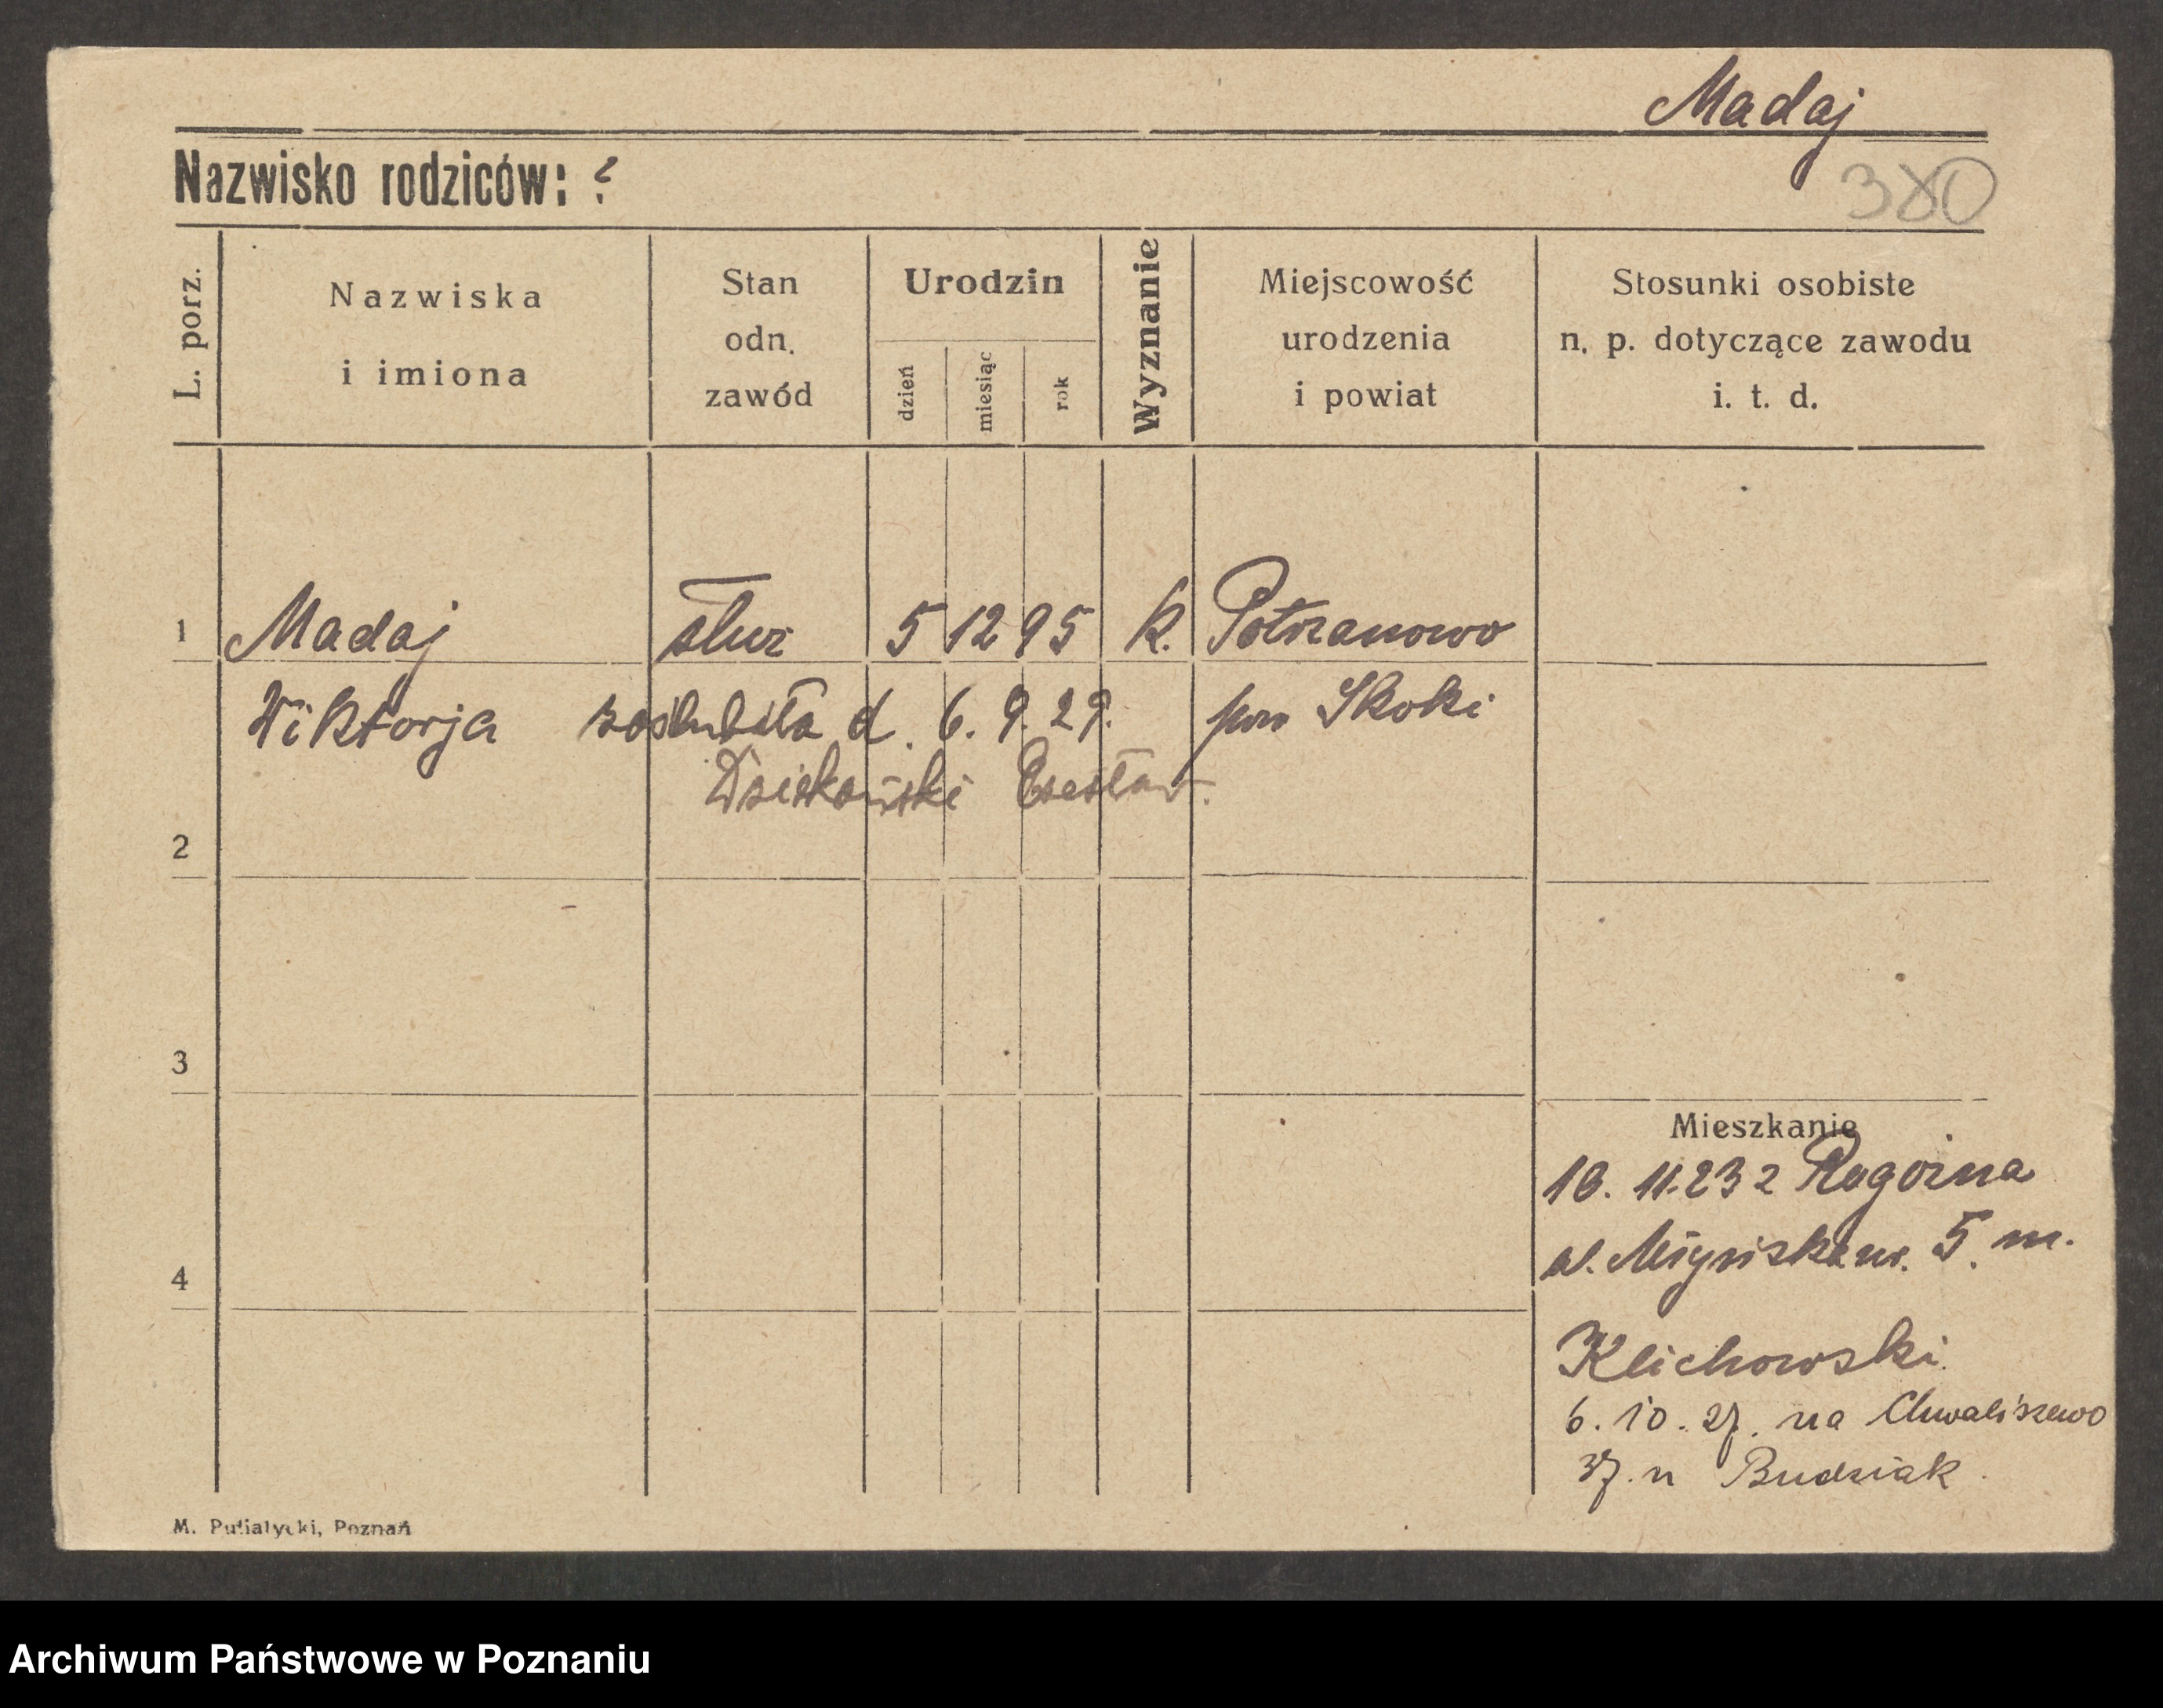 Madaj
Nazwisko rodziców: ?
380
L. porz.
Nazwiska
i imiona
Stan
odn.
zawód
Urodzin
dzień
miesiąc
rok
Wyznanie
Miejscowość
urodzenia
i powiat
Stosunki osobiste
n. p. dotyczące zawodu
i. t. d.
1 Madaj służ 5 12 95 k. Potrzanowo
Wiktorja zaślubiła d. 6. 9. 29. pow Skoki
Dziekański Czesław.
2
3
4
Mieszkanie
16. 11. 23 z Rogoźna
nr. 5 m.
Klichowski
6. 10. 27. na Chwaliszewo
37. u Budziak.
M. Putiatycki, Poznań
Archiwum Państwowe w Poznaniu